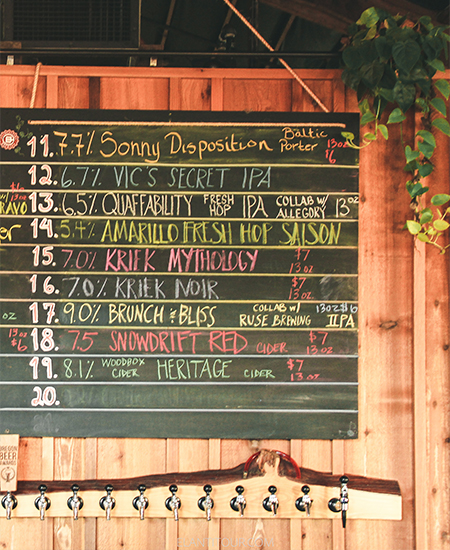 11. 7.7% Sonny Disposition Baltic Porter 13oz $6
12. 6.7% VIC'S SECRET IPA
RAVO 13. 6.5% QUAFFABILITY FRESH HOP IPA COLLAB W/ ALLEGORY 13oz
er 14. 5.4% AMARILLO FRESH HOP SAISON
15. 7.0% KRIEK MYTHOLOGY $7 13oz
16. 7.0% KRIEK NOIR $7 13oz
oz 17. 9.0% BRUNCH & BLISS COLLAB W/ RUSE BREWING 13oz $6 IIPA
13oz $6 18. 7.5 SNOWDRIFT RED CIDER $7 13oz
19. 8.1% WOODBOX CIDER HERITAGE CIDER $7 13oz
20.
OREGON
BEER
AWARDS